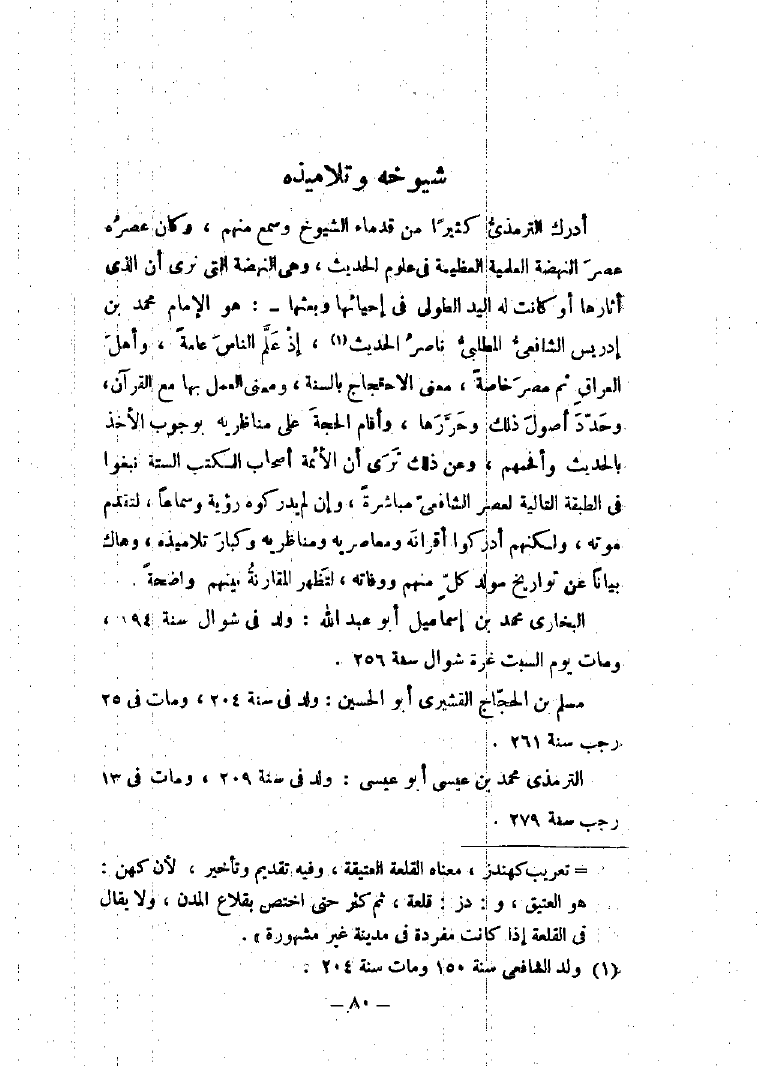 شيوخه وتلاميذه
أدرك الترمذىُّ كثيرًا من قدماء الشيوخ وسمع منهم ، وكان عصرُه
عصرَ النهضة العلمية العظيمة فى علوم الحديث ، وهى النهضة التى نرى أن الذى
أثارها أو كانت له اليد الطولى فى إحيائها وبعثها ــ : هو الإمام محمد بن
إدريس الشافعىُّ المطلبىُّ ناصرُ الحديث (١) ، إذْ عَلَّم الناسَ عامةً ، وأهلَ
العراقِ ثم مصرَ خاصةً ، معنى الاحتجاج بالسنة ، ومعنى العمل بها مع القرآن ،
وحَدَّدَ أصولَ ذلك وحَرَّرَها ، وأقام الحجةَ على مناظريه بوجوب الأخذ
بالحديث وأفحمهم ، وعن ذلك نَرَى أن الأئمة أصحاب الكتب الستة نبغوا
فى الطبقة التالية لعصر الشافعىّ مباشرةً ، وإن لم يدركوه رؤية وسماعاً ، لتقدم
موته ، ولكنهم أدركوا أقرانَه ومعاصريه ومناظريه وكبارَ تلاميذه ، وهاك
بياناً عن تواريخ مولد كلٍّ منهم ووفاته ، لتَظهر المقارنةُ بينهم واضحةً .
البخارى محمد بن إسماعيل أبو عبد الله : ولد فى شوال سنة ١٩٤ ،
ومات يوم السبت غرة شوال سنة ٢٥٦ .
مسلم بن الحجّاج القشيرى أبو الحسين : ولد فى سنة ٢٠٤ ، ومات فى ٢٥
رجب سنة ٢٦١ .
الترمذى محمد بن عيسى أبو عيسى : ولد فى سنة ٢٠٩ ، ومات فى ١٣
رجب سنة ٢٧٩ .
= تعريب كهندز ، معناه القلعة العتيقة ، وفيه تقديم وتأخير ، لأن كهن :
هو العتيق ، و : دز : قلعة ، ثم كثر حتى اختص بقلاع المدن ، ولا يقال
فى القلعة إذا كانت مفردة فى مدينة غير مشهورة » .
(١) ولد الشافعى سنة ١٥٠ ومات سنة ٢٠٤ .
— ٨٠ —